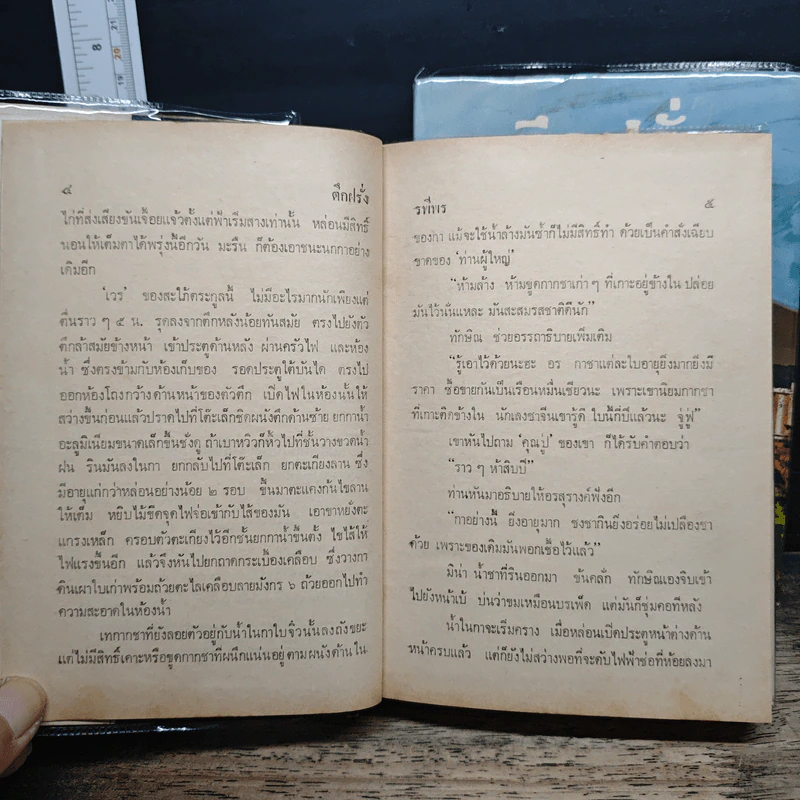 ๔ ตึกฝรั่ง
ไก่ที่ส่งเสียงขันเจื้อยแจ้วตั้งแต่ฟ้าเริ่มสางเท่านั้น หล่อนมีสิทธิ์
นอนให้เต็มตาได้พรุ่งนี้อีกวัน มะรืน ก็ต้องเอาชนะนกกาอย่าง
เดิมอีก
'เวร' ของสะใภ้ตระกูลนี้ ไม่มีอะไรมากนักเพียงแต่
ตื่นราว ๆ ๕ น. รุดลงจากตึกหลังน้อยทันสมัย ตรงไปยังตัว
ตึกล้าสมัยข้างหน้า เข้าประตูด้านหลัง ผ่านครัวไฟ และห้อง
น้ำ ซึ่งตรงข้ามกับห้องเก็บของ รอดประตูใต้บันได ตรงไป
ออกห้องโถงกว้างด้านหน้าของตัวตึก เปิดไฟในห้องนั้นให้
สว่างขึ้นก่อนแล้วปราดไปที่โต๊ะเล็กชิดผนังตึกด้านซ้าย ยกกาน้ำ
อะลูมิเนียมขนาดเล็กขึ้นชั่งดู ถ้าเบาหวิวก็หิ้วไปที่ชั้นวางขวดน้ำ
ฝน รินมันลงในกา ยกกลับไปที่โต๊ะเล็ก ยกตะเกียงลาน ซึ่ง
มีอายุแก่กว่าหล่อนอย่างน้อย ๒ รอบ ขึ้นมาตะแคงก้นไขลาน
ให้เต็ม หยิบไม้ขีดจุดไฟจ่อเข้ากับไส้ของมัน เอาขาหยั่งตะ
แกรงเหล็ก ครอบตัวตะเกียงไว้อีกชั้นยกกาน้ำขึ้นตั้ง ไขไส้ให้
ไฟแรงขึ้นอีก แล้วจึงหันไปยกถาดกระเบื้องเคลือบ ซึ่งวางกา
ดินเผาใบเก่าพร้อมถ้วยตะไลเคลือบลายมังกร ๖ ถ้วยออกไปทำ
ความสะอาดในห้องน้ำ
เทกากชาที่ยังลอยตัวอยู่กับน้ำในกาใบจิ๋วนั้นลงถังขยะ
แต่ไม่มีสิทธิ์เคาะหรือขูดกากชาที่ผนึกแน่นอยู่ตามผนังด้านใน
รพีพร ๕
ของกา แม้จะใช้น้ำล้างมันซ้ำก็ไม่มีสิทธิ์ทำ ด้วยเป็นคำสั่งเฉียบ
ขาดของ 'ท่านผู้ใหญ่'
"ห้ามล้าง ห้ามขูดกากชาเก่า ๆ ที่เกาะอยู่ข้างใน ปล่อย
มันไว้นั่นแหละ มันสะสมรสชาติดีนัก"
ทักษิณ ช่วยอรรถาธิบายเพิ่มเติม
"รู้เอาไว้ด้วยนะฮะ อร กาชาแต่ละใบอายุยิ่งมากยิ่งมี
ราคา ซื้อขายกันเป็นเรือนหมื่นเชียวนะ เพราะเขานิยมกากชา
ที่เกาะติดข้างใน นักเลงชาจีนเขารู้ดี ใบนี้กี่ปีแล้วนะ จู่ฟู่"
เขาหันไปถาม 'คุณปู่' ของเขา ก็ได้รับคำตอบว่า
"ราว ๆ ห้าสิบปี"
ท่านหันมาอธิบายให้อรสุรางค์ฟังอีก
"กาอย่างนี้ ยิ่งอายุมาก ชงชากินยิ่งอร่อยไม่เปลืองชา
ด้วย เพราะของเดิมมันพอกเชื้อไว้แล้ว"
มิน่า น้ำชาที่รินออกมา ข้นคลั่ก ทักษิณเองจิบเข้า
ไปยังหน้าเบ้ บ่นว่าขมเหมือนบรเพ็ด แต่มันก็ชุ่มคอทีหลัง
น้ำในกาจะเริ่มคราง เมื่อหล่อนเปิดประตูหน้าต่างด้าน
หน้าครบแล้ว แต่ก็ยังไม่สว่างพอที่จะดับไฟฟ้าช่อที่ห้อยลงมา
8
19
20
21